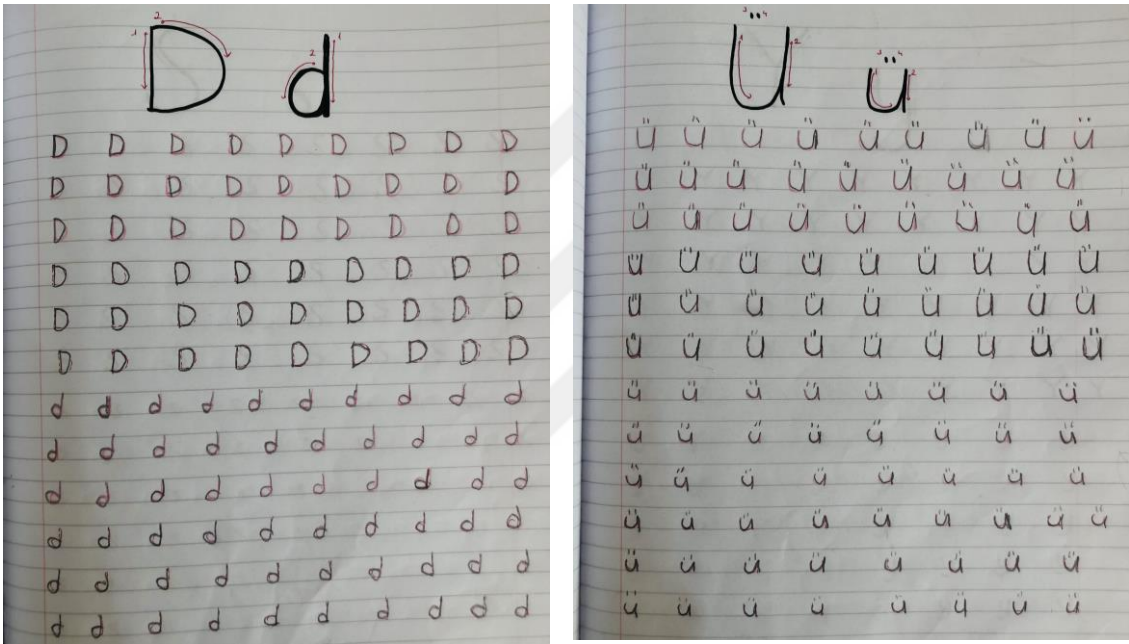 2
1
2 1
D d
D D D D D D D D D
D D D D D D D D D
D D D D D D D D D
D D D D D D D D D
D D D D D D D D D
D D D D D D D D D
d d d d d d d d d d
d d d d d d d d d d
d d d d d d d d d d
d d d d d d d d d d
d d d d d d d d d d
d d d d d d d d d d
3 4
1 2
3 4
1 2
Ü ü
Ü Ü Ü Ü Ü Ü Ü Ü Ü
Ü Ü Ü Ü Ü Ü Ü Ü Ü
Ü Ü Ü Ü Ü Ü Ü Ü Ü
Ü Ü Ü Ü Ü Ü Ü Ü Ü
Ü Ü Ü Ü Ü Ü Ü Ü Ü
Ü Ü Ü Ü Ü Ü Ü Ü Ü
ü ü ü ü ü ü ü ü
ü ü ü ü ü ü ü ü
ü ü ü ü ü ü ü ü
ü ü ü ü ü ü ü ü ü
ü ü ü ü ü ü ü ü
ü ü ü ü ü ü ü ü